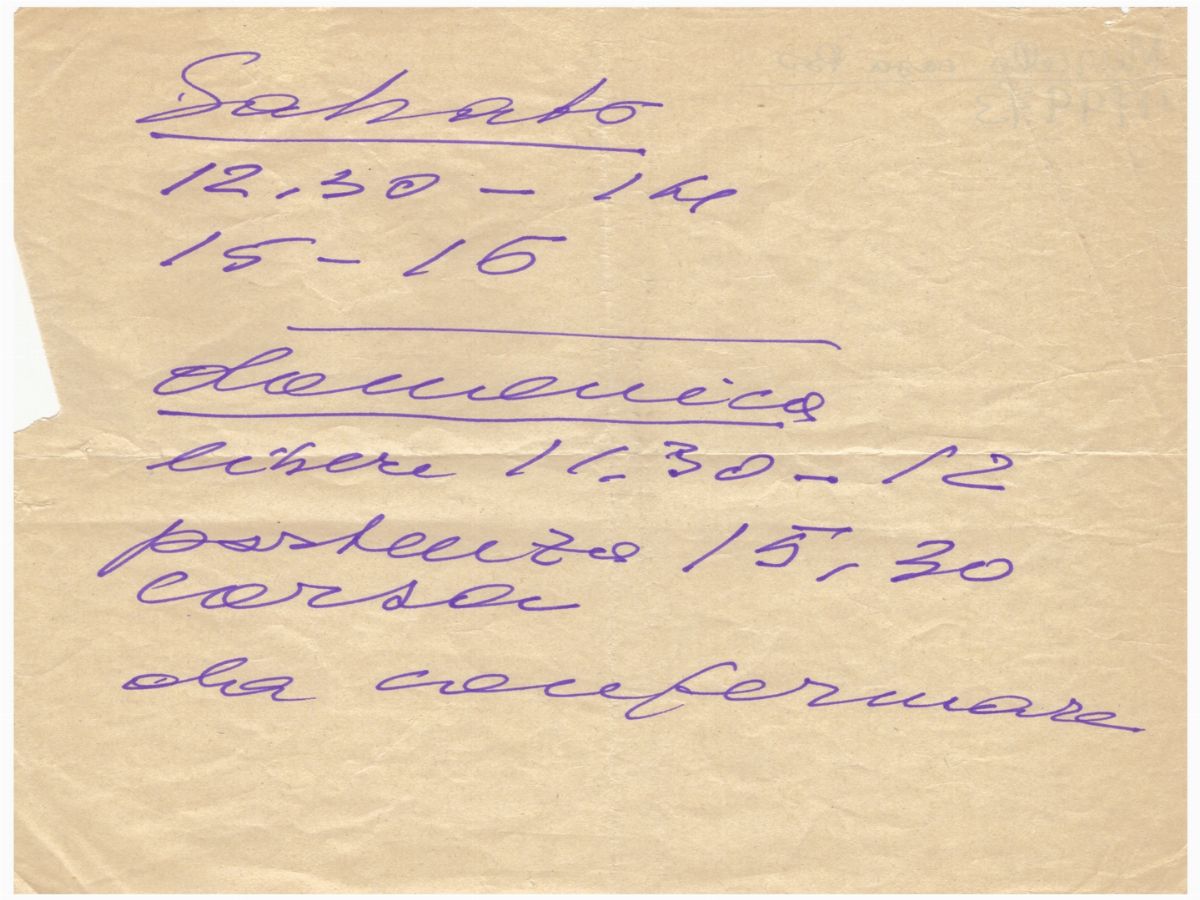 Sabato
12.30 - 14
15 - 16
domenica
libere 11.30 - 12
partenza 15,30
corsa
da confermare